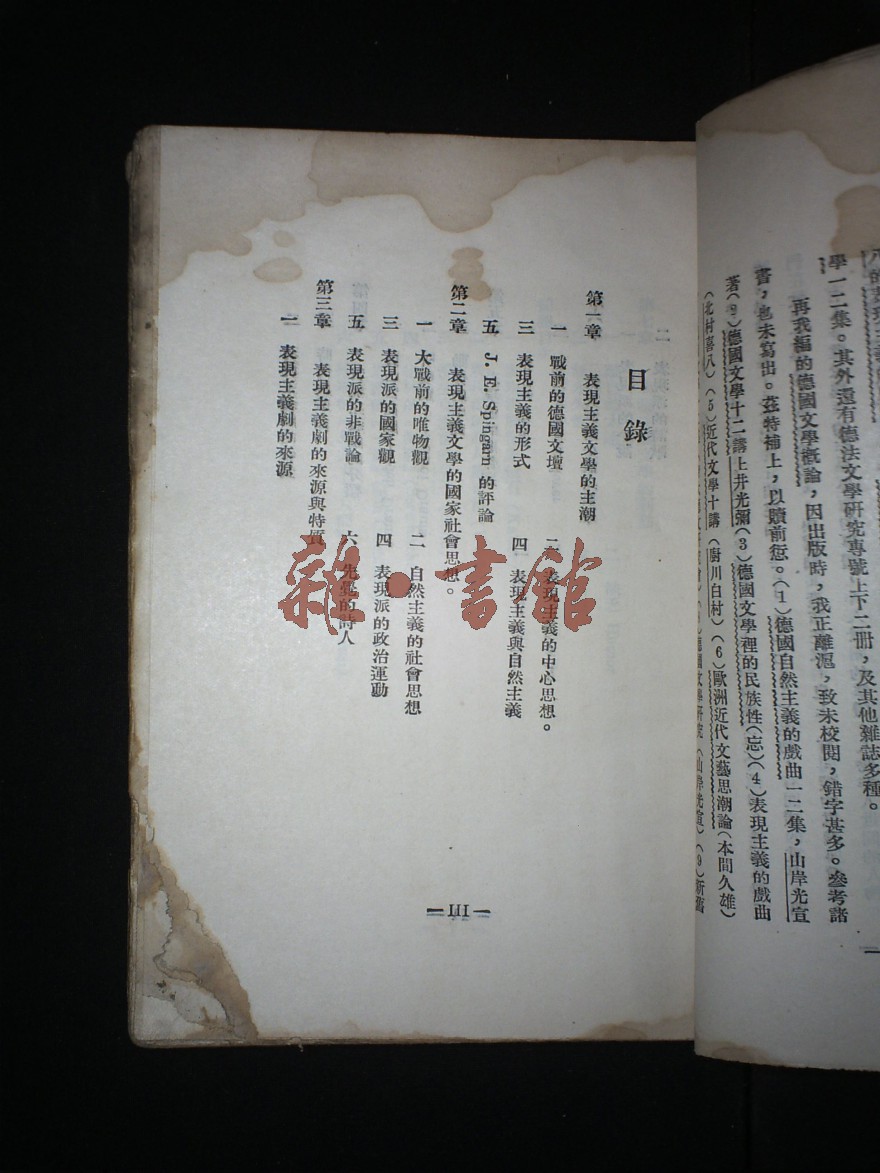 學一二集。其外還有德法文學研究專號上下二冊，及其他雜誌多種。
再我編的德國文學概論，因出版時，我正離滬，致未校閱，錯字甚多。參考諸
書，也未寫出。茲特補上，以贖前愆。(1)德國自然主義的戲曲一二集，山岸光宣
著(2)德國文學十二講上井光彌(3)德國文學裡的民族性(忘)(4)表現主義的戲曲
(北村喜八)(5)近代文學十講(廚川白村)(6)歐洲近代文藝思潮論(本間久雄)
目錄
第一章 表現主義文學的主潮
一 戰前的德國文壇 二 表現主義的中心思想。
三 表現主義的形式 四 表現主義與自然主義
五 J. E. Spingarn 的評論
第二章 表現主義文學的國家社會思想。
一 大戰前的唯物觀 二 自然主義的社會思想
三 表現派的國家觀 四 表現派的政治運動
五 表現派的非戰論 六 先覺的詩人
第三章 表現主義劇的來源與特質
一 表現主義劇的來源
III
雜·書館